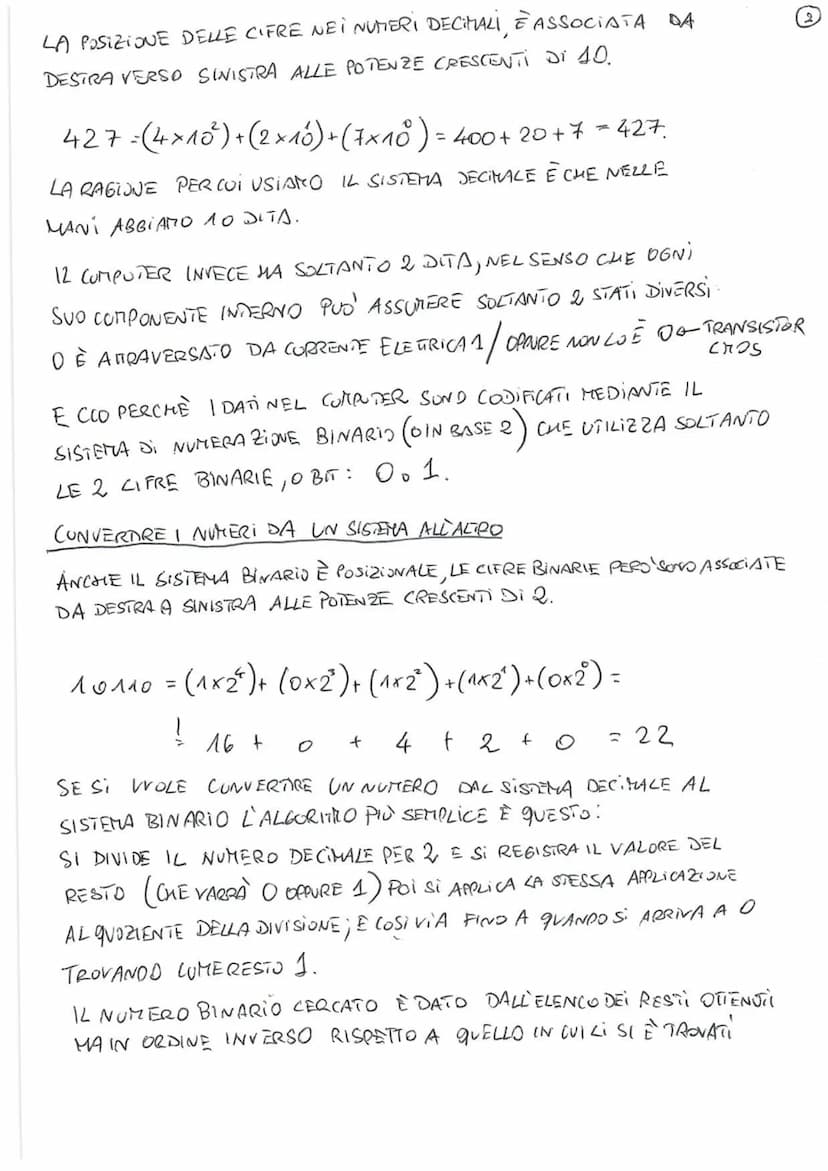 2
LA POSIZIONE DELLE CIFRE NEI NUMERI DECIMALI, È ASSOCIATA DA
DESTRA VERSO SINISTRA ALLE POTENZE CRESCENTI DI 10.
427 = (4×10²)+(2×10¹)+(7×10⁰) = 400+20+7 = 427.
LA RAGIONE PER CUI USIAMO IL SISTEMA DECIMALE È CHE NELLE
MANI ABBIAMO 10 DITA.
IL COMPUTER INVECE HA SOLTANTO 2 DITA, NEL SENSO CHE OGNI
SUO COMPONENTE INTERNO PUÒ ASSUMERE SOLTANTO 2 STATI DIVERSI
O È ATTRAVERSATO DA CORRENTE ELETTRICA 1 / OPPURE NON LO È 0 ← TRANSISTOR
CMOS
ECCO PERCHÈ I DATI NEL COMPUTER SONO CODIFICATI MEDIANTE IL
SISTEMA DI NUMERAZIONE BINARIO (O IN BASE 2) CHE UTILIZZA SOLTANTO
LE 2 CIFRE BINARIE, O BIT: 0 o 1.
CONVERTIRE I NUMERI DA UN SISTEMA ALL'ALTRO
ANCHE IL SISTEMA BINARIO È POSIZIONALE, LE CIFRE BINARIE PERÒ SONO ASSOCIATE
DA DESTRA A SINISTRA ALLE POTENZE CRESCENTI DI 2.
10110 = (1×2⁴)+(0×2³)+(1×2²)+(1×2¹)+(0×2⁰) =
! = 16 + 0 + 4 + 2 + 0 = 22
SE SI VUOLE CONVERTIRE UN NUMERO DAL SISTEMA DECIMALE AL
SISTEMA BINARIO L'ALGORITMO PIÙ SEMPLICE È QUESTO:
SI DIVIDE IL NUMERO DECIMALE PER 2 E SI REGISTRA IL VALORE DEL
RESTO (CHE VARRÀ 0 OPPURE 1) POI SI APPLICA LA STESSA APPLICAZIONE
AL QUOZIENTE DELLA DIVISIONE; E COSÌ VIA FINO A QUANDO SI ARRIVA A 0
TROVANDO COME RESTO 1.
IL NUMERO BINARIO CERCATO È DATO DALL'ELENCO DEI RESTI OTTENUTI
MA IN ORDINE INVERSO RISPETTO A QUELLO IN CUI LI SI È TROVATI